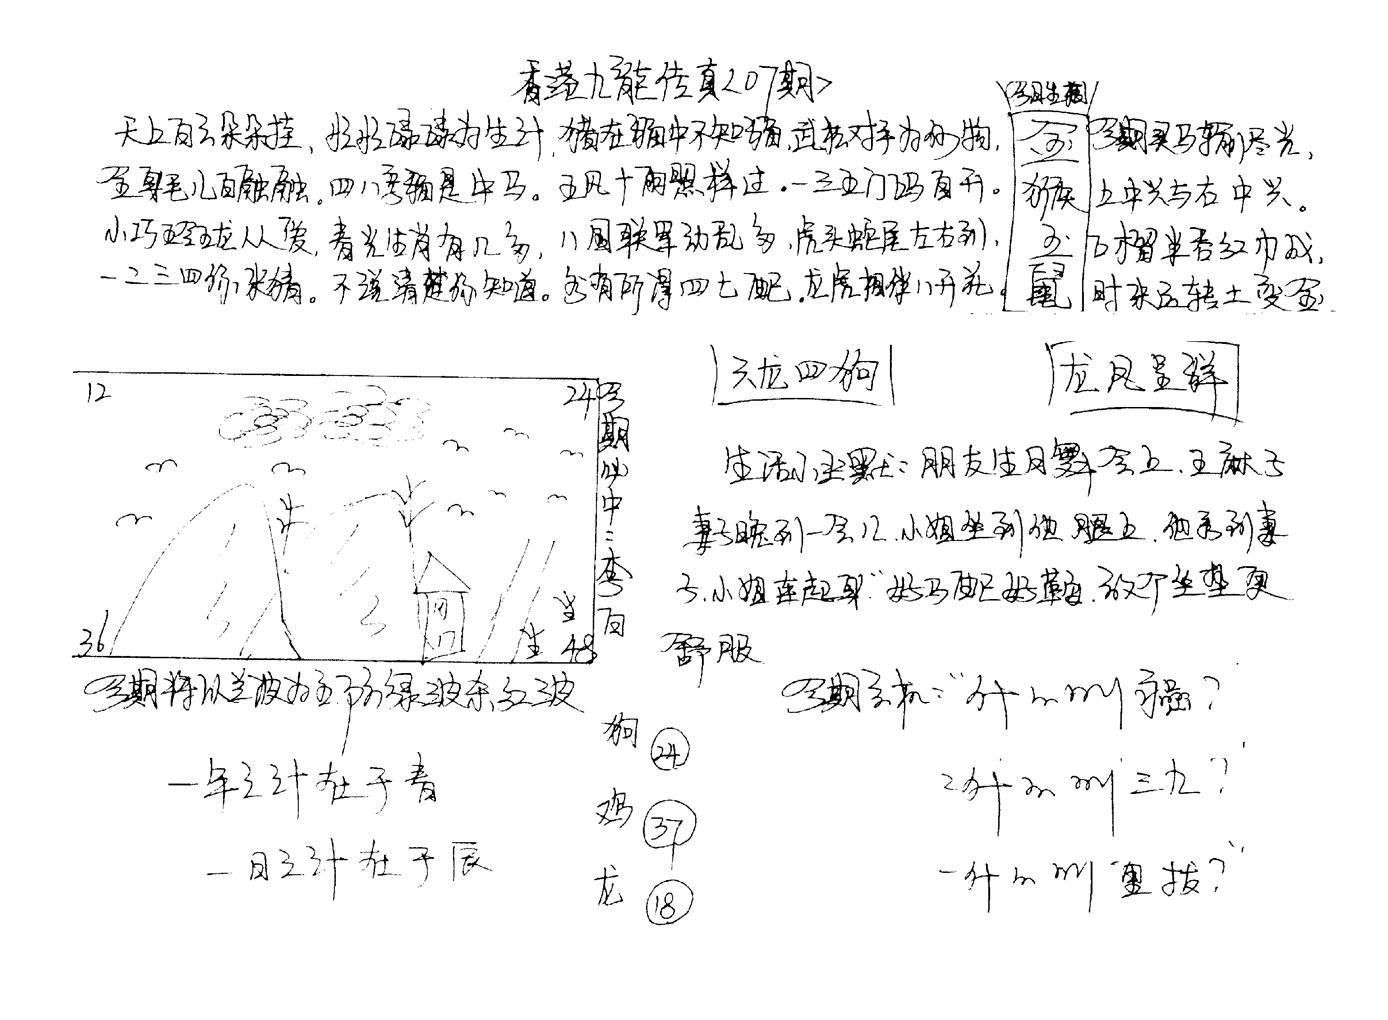 香港九龙传真<207期>
今日生相
天上白云朵朵挂，忙忙碌碌为生计，猪在猫中不知猫，武松对手为何物，
金 今期买马输尽光，
身毛儿白融融。四八要猫是中马。五风十雨照样过。一三五门码百开。
猴 上中兴与右中兴。
小巧玲珑龙人人爱，青光生肖有几多，八国联军动乱多，虎头蛇尾左右到，
玉 石榴半吞红巾戏，
一二三四你来猜。不说清楚你知道。各有所得四七配。龙虎相伴八开花。
鼠 时来运转土变金
天龙四狗
龙凤呈祥
12
24
36
48
今期必中：李白
生活小幽默：朋友生日舞会上，王麻子
妻子晚到一会儿，小姐坐到他腿上，他看到妻
子，小姐连起身"好马配好鞍，放个坐垫更
舒服
今期将以兰波为主 防绿波杀红波
一年之计在于春
一日之计在于辰
狗 24
鸡 37
龙 18
今期玄机："什么叫 ？
2什么叫"三九？"
一什么叫"里拔？"